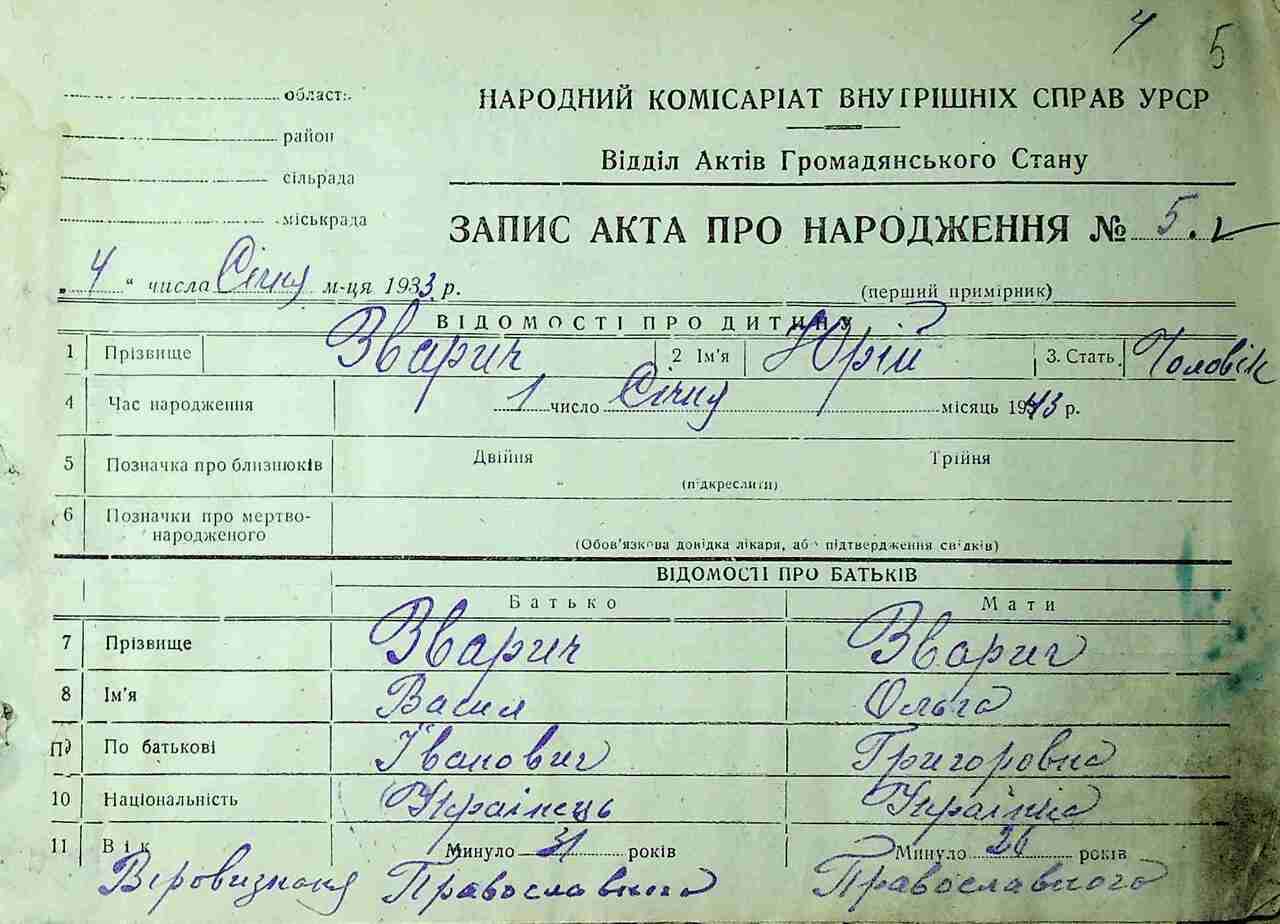 4 5
област:.
район
сільрада
міськрада
НАРОДНИЙ КОМІСАРІАТ ВНУТРІШНІХ СПРАВ УРСР
Відділ Актів Громадянського Стану
ЗАПИС АКТА ПРО НАРОДЖЕННЯ № 5.
„4“ числа Січня м-ця 1933 р.
(перший примірник)
ВІДОМОСТІ ПРО ДИТИНУ
1 Прізвище Зварич 2 Ім'я Юрій 3. Стать Чоловік
4 Час народження 1 число Січня місяць 1943 р.
5 Позначка про близнюків Двійня Трійня
(підкреслити)
6 Позначки про мертво-
народженого
(Обов'язкова довідка лікаря, або підтвердження свідків)
ВІДОМОСТІ ПРО БАТЬКІВ
Батько Мати
7 Прізвище Зварич Зварич
8 Ім'я Васил Ольга
По батькові Іванович Григоровна
10 Національність Українець Українка
11 Вік Минуло 31 років Минуло 26 років
Віровизнаня Православного Православного